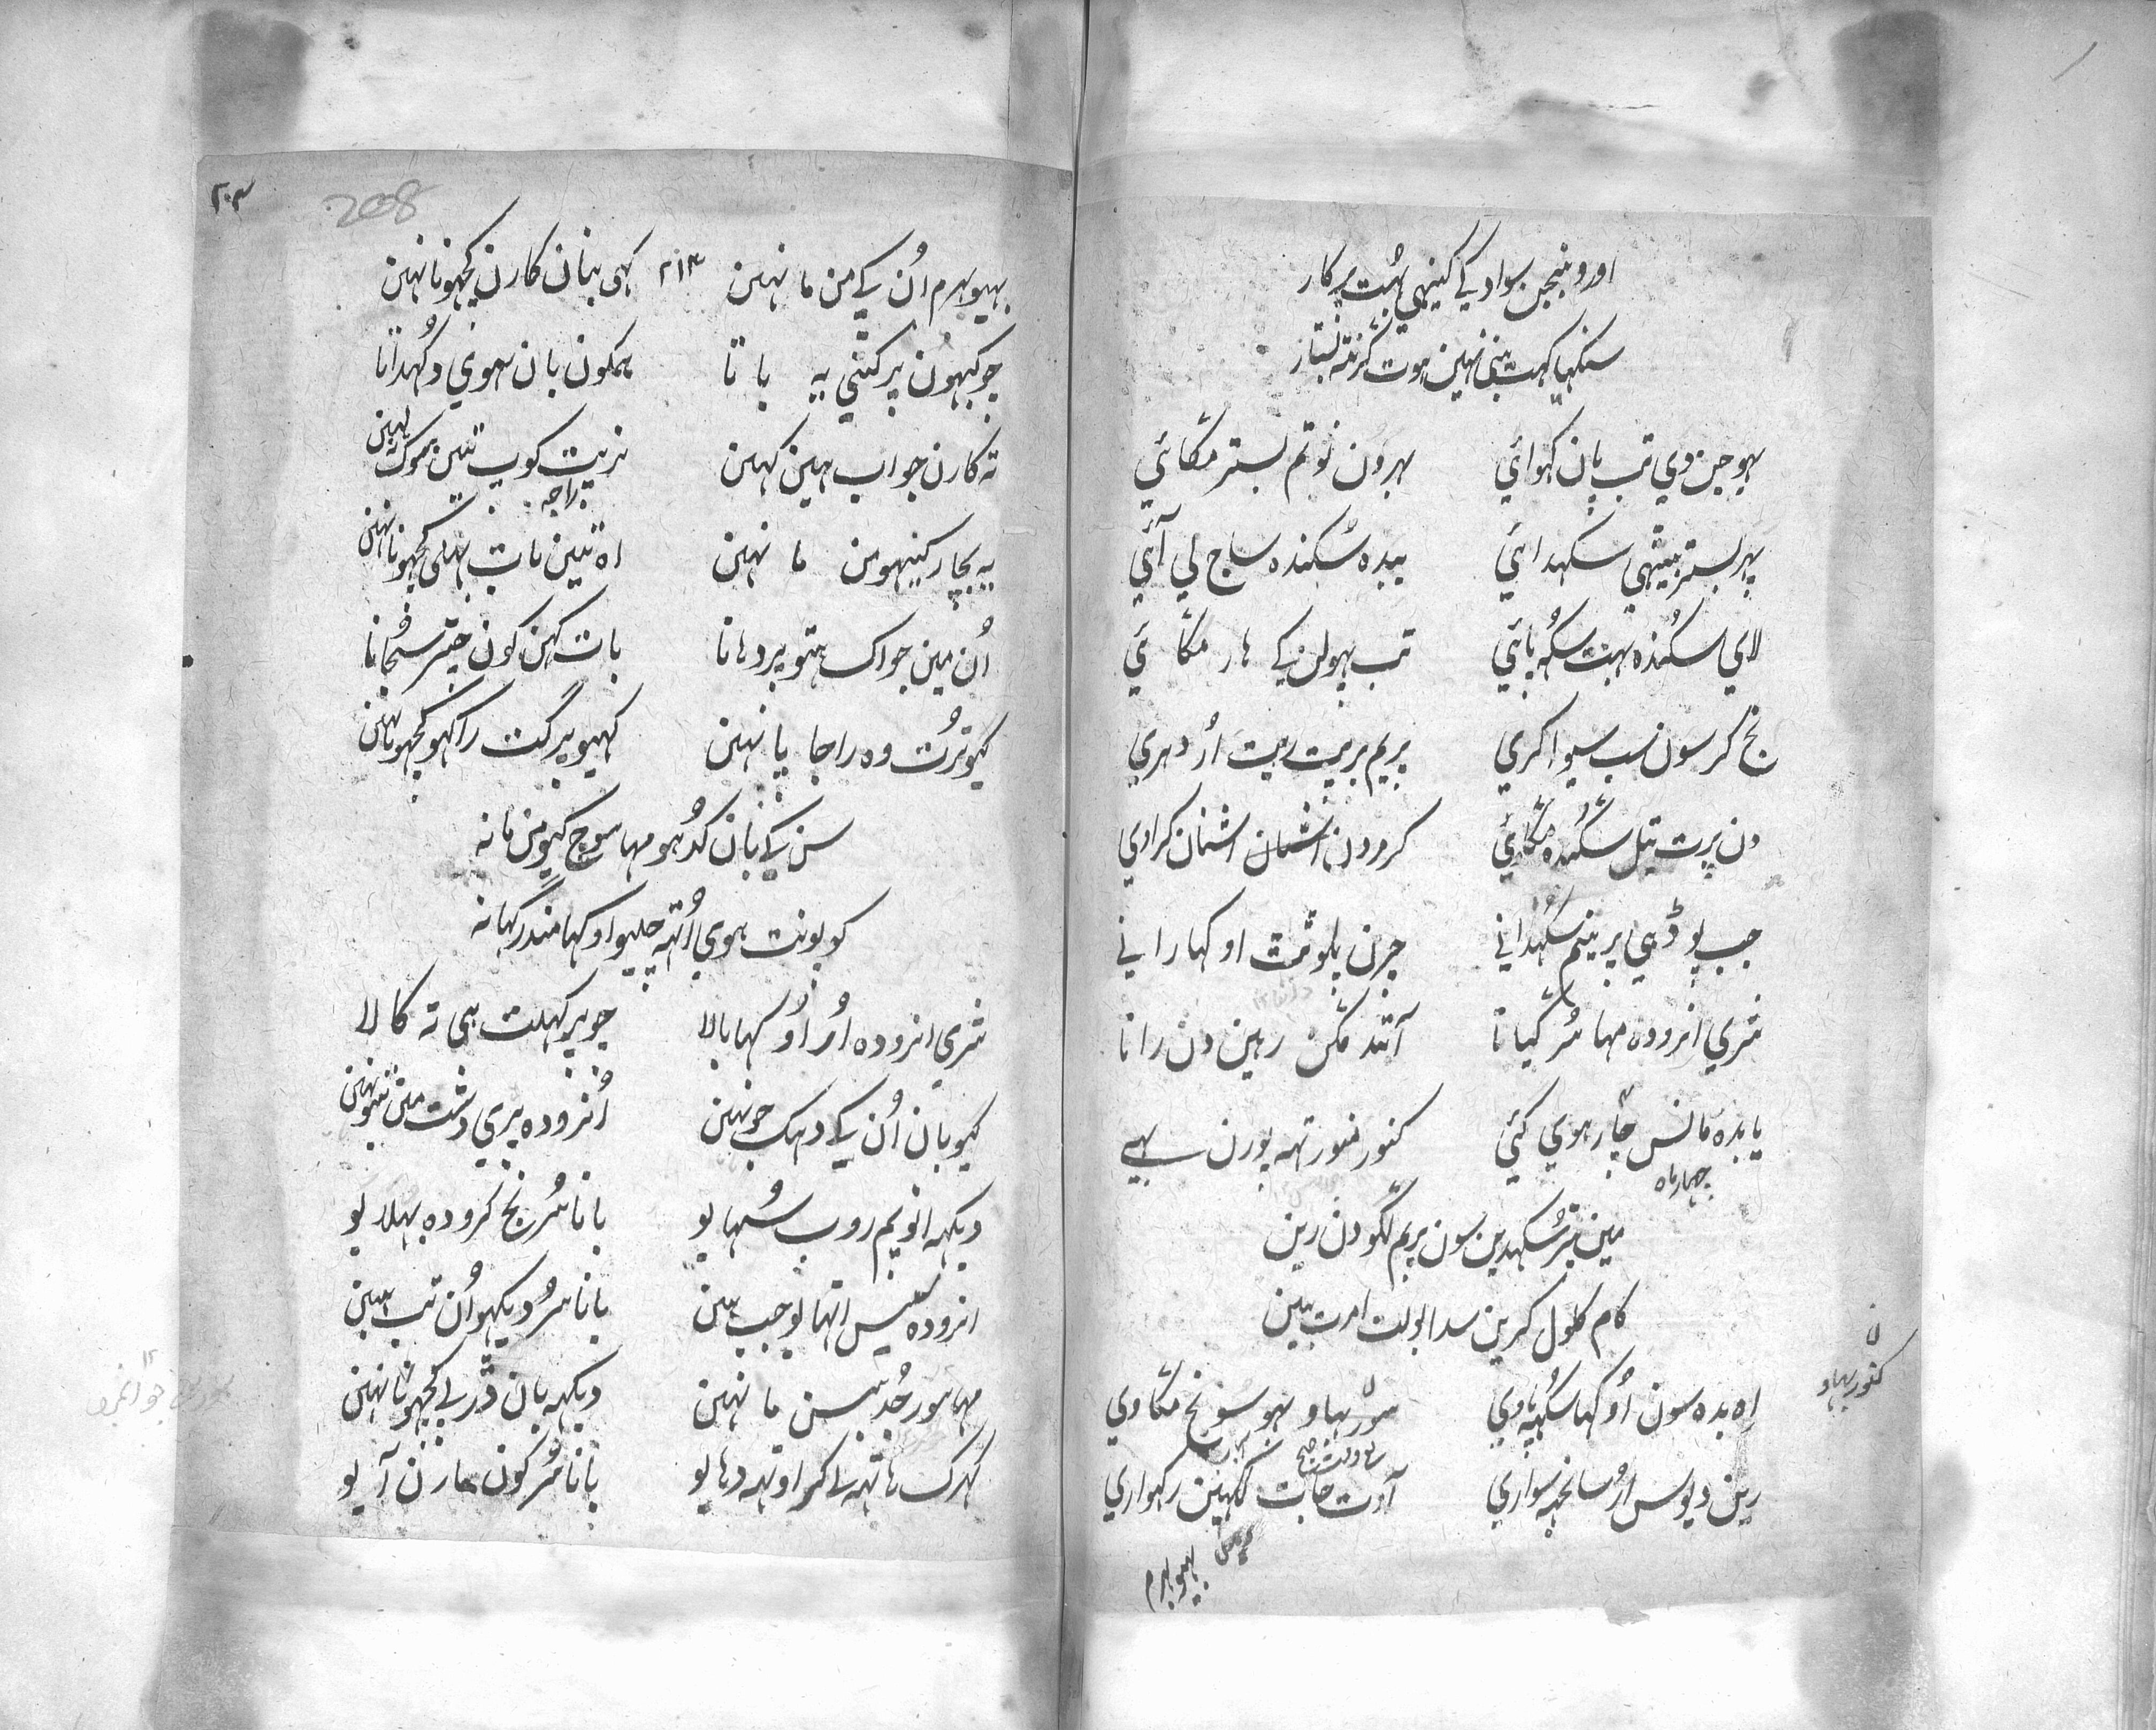 اور وبنجن سواد کے کینھی بہت پرکار
سنکھیا کہت بنی نہین ہوت گرنتہ بستار
بہوجن دي تب پان کہوائي بہرون نوتم بستر منگائي
پہر بستر بیٹہي سکہدائي ببدہ سکندہ ساج لي آئي
لاي سکندہ بہت سکہ پائي تب پہولن کے ہار منگائي
نج کر سون سب سیوا کري پریم پریت ریت اُر دہري
دن پرت تیل سگندہ منگاوي کرودن اشنان اشنان کراوي
جب پوڈہي پریتم سکہداني چرن پلوٹت اوکہا راني
شري انرودہ مہا سُر گیانا آنند مگن رہین دن رانا
یا بدہ مانس چار ہوي گئي کنور منورتہہ پورن بہیے
چہار ماہ
مین پتر سکہدین سون پریم لگو دن رین
کام کلول کرین سدا بولت امرت بین
اہ بدہ سون اُوکہا سکہہ پاوي سور بہاو بہو سونج منگاوي
کنور بہاو
رین دیوس اُر سانجہہ سواري آوت جات لکہین رکہواري
بہیو بہرم
۲۰۳
208
بہیو بہرم اُن کے من ما نہین ۲۱۳ کہی بنا ن کارن کچہو نانہین
جو کہہون پرکٹني یہ باتا ہمکون بان ہوي دکہداتا
تہ کارن جواب ہین کہین نریت کوپ تین موکہ لہین
راجہ
یہ بچار کینہو من ما نہین اہ تین بات بہلی کچہو نانہین
اُن مین جو اک ہتو پردہانا بات کہن کون چتر سُجانا
گیو تُرت وہ راجا پا نہین کہیو پرگٹ راکہو کچہو نانہین
سن کے بان کدُہو مہا سوچ کیو من مانہ
کوپونت ہوي اُٹہہ چلیو اوکہا مندر کہانہ
شري انرودہ اُر اُوکہا بالا چوپر کہیلت ہی تہ کالا
گیو بان اُن کے دہک جو نہین اُنرودہ پري دشٹ متن تیو نہین
دیکہہ انوپم روپ سُہایو باناسُر نج کرودہ بہلایو
انرودہ سیس اٹہایو جب ہین باناسُر دیکہو اُن تب ہین
مہا سور جُد ہسن ما نہین دیکہہ بان ڈرپے کچہو نانہین
کہرگ ہاتہہ لے کر اوٹہہ دہایو باناسُر کون مارن آیو